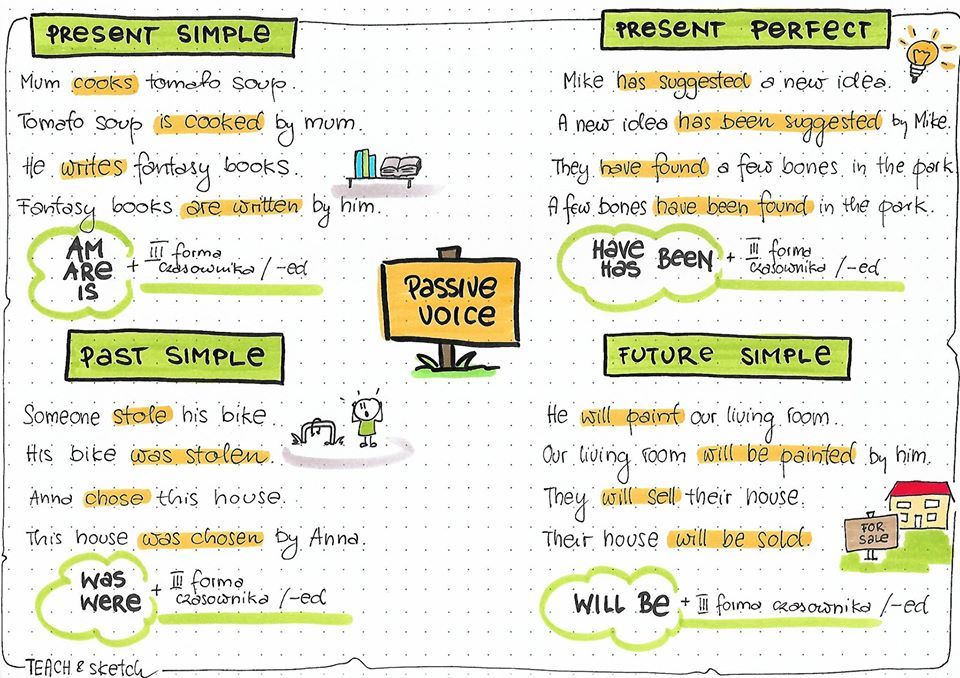 PRESENT SIMPLE
Mum cooks tomato soup.
Tomato soup is cooked by mum.
He writes fantasy books.
Fantasy books are written by him.
AM
ARE
IS
+ III forma
czasownika /-ed
PRESENT PERFECT
Mike has suggested a new idea.
A new idea has been suggested by Mike.
They have found a few bones in the park
A few bones have been found in the park.
HAVE
HAS BEEN
+ III forma
czasownika /-ed
PASSIVE
VOICE
PAST SIMPLE
Someone stole his bike.
His bike was stolen.
Anna chose this house.
This house was chosen by Anna.
WAS
WERE
+ III forma
czasownika /-ed
FUTURE SIMPLE
He will paint our living room.
Our living room will be painted by him.
They will sell their house.
Their house will be sold.
FOR
SALE
WILL BE + III forma czasownika /-ed
TEACH & sketch